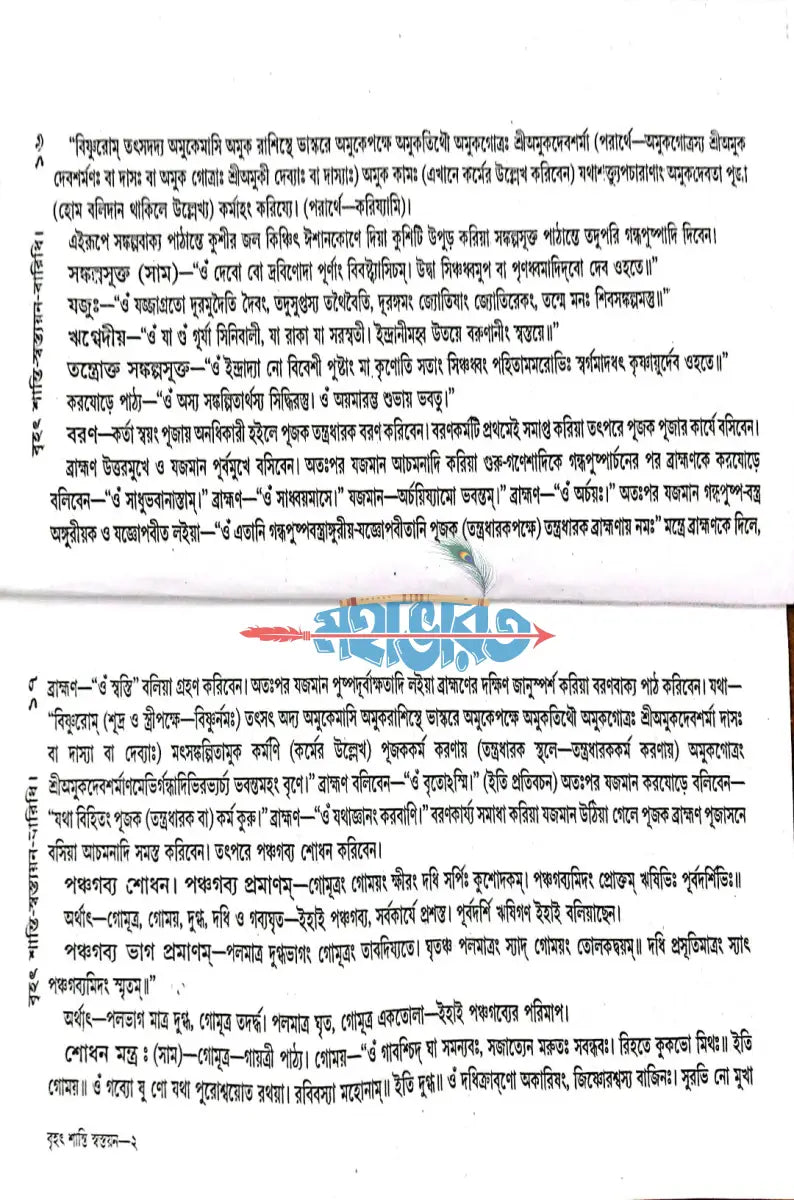 ১৬
বৃহৎ শান্তি-স্বস্ত্যয়ন-বারিধি।
“বিষ্ণুরোম্ তৎসদদ্য অমুকেমাসি অমুক রাশিস্থে ভাস্করে অমুকেপক্ষে অমুকতিথৌ অমুকগোত্রঃ শ্রীঅমুকদেবশর্মা (পরার্থে—অমুকগোত্রস্য শ্রীঅমুক
দেবশর্মণঃ বা দাসঃ বা অমুক গোত্রাঃ শ্রীঅমুকী দেব্যাঃ বা দাস্যাঃ) অমুক কামঃ (এখানে কর্মের উল্লেখ করিবেন) যথাশক্ত্যুপচারাণাং অমুকদেবতা পূজা
(হোম বলিদান থাকিলে উল্লেখ্য) কর্মাহং করিষ্যে। (পরার্থে—করিষ্যামি)।
এইরূপে সঙ্কল্পবাক্য পাঠান্তে কুশীর জল কিঞ্চিৎ ঈশানকোণে দিয়া কুশিটি উপুড় করিয়া সঙ্কল্পসূক্ত পাঠান্তে তদুপরি গন্ধপুষ্পাদি দিবেন।
সঙ্কল্পসূক্ত (সাম)—“ওঁ দেবো বো দ্রবিণোদা পূর্ণাং বিবষ্ট্যাসিচম্। উদ্বা সিঞ্চধ্বমুপ বা পৃণধ্বমাদিদ্‌বো দেব ওহতে॥”
যজুঃ—“ওঁ যজ্জাগ্রতো দূরমুদৈতি দৈবং, তদুসুপ্তস্য তথৈবৈতি, দূরঙ্গমং জ্যোতিষাং জ্যোতিরেকং, তন্মে মনঃ শিবসঙ্কল্পমস্তু॥”
ঋগ্বেদীয়—“ওঁ যা গুঁ গূর্যা সিনিবালী, যা রাকা যা সরস্বতী। ইন্দ্রানীমহ্ব উতয়ে বরুণানীং স্বস্তয়ে॥”
তন্ত্রোক্ত সঙ্কল্পসূক্ত—“ওঁ ইন্দ্রাদ্যা নো বিবেশী পুষ্টাং মা কৃণোতি সতাং সিঞ্চধ্বং পহিতামমরোভিঃ স্বর্গমাদধৎ কৃষ্ণায়ুর্দেব ওহতে॥”
করযোড়ে পাঠ্য—“ওঁ অস্য সঙ্কল্পিতার্থস্য সিদ্ধিরস্তু। ওঁ অয়মারম্ভ শুভায় ভবতু।”
বরণ—কর্তা স্বয়ং পূজায় অনধিকারী হইলে পূজক তন্ত্রধারক বরণ করিবেন। বরণকর্মটি প্রথমেই সমাপ্ত করিয়া তৎপরে পূজক পূজার কার্যে বসিবেন।
ব্রাহ্মণ উত্তরমুখে ও যজমান পূর্বমুখে বসিবেন। অতঃপর যজমান আচমনাদি করিয়া গুরু-গণেশাদিকে গন্ধপুষ্পার্চনের পর ব্রাহ্মণকে করযোড়ে
বলিবেন—“ওঁ সাধুভবানাস্তাম্।” ব্রাহ্মণ—“ওঁ সাধ্বয়মাসে।” যজমান—অর্চয়িষ্যামো ভবন্তম্।” ব্রাহ্মণ—“ওঁ অর্চয়ঃ।” অতঃপর যজমান গন্ধপুষ্প-বস্ত্র
অঙ্গুরীয়ক ও যজ্ঞোপবীত লইয়া—“ওঁ এতানি গন্ধপুষ্পবস্ত্রাঙ্গুরীয়-যজ্ঞোপবীতানি পূজক (তন্ত্রধারকপক্ষে) তন্ত্রধারক ব্রাহ্মণায় নমঃ” মন্ত্রে ব্রাহ্মণকে দিলে,
মহাভারত
১৭
বৃহৎ শান্তি-স্বস্ত্যয়ন-বারিধি।
ব্রাহ্মণ—“ওঁ স্বস্তি” বলিয়া গ্রহণ করিবেন। অতঃপর যজমান পুষ্পদূর্বাক্ষতাদি লইয়া ব্রাহ্মণের দক্ষিণ জানুস্পর্শ করিয়া বরণবাক্য পাঠ করিবেন। যথা—
“বিষ্ণুরোম্ (শূদ্র ও স্ত্রীপক্ষে—বিষ্ণুর্নমঃ) তৎসৎ অদ্য অমুকেমাসি অমুকরাশিস্থে ভাস্করে অমুকেপক্ষে অমুকতিথৌ অমুকগোত্রঃ শ্রীঅমুকদেবশর্মা দাসঃ
বা দাস্যা বা দেব্যাঃ) মৎসঙ্কল্পিতামুক কর্মণি (কর্মের উল্লেখ) পূজককর্ম করণায় (তন্ত্রধারক স্থলে—তন্ত্রধারককর্ম করণায়) অমুকগোত্রং
শ্রীঅমুকদেবশর্মাণমেভির্গন্ধাদিভিরভ্যর্চ্য ভবন্তমহং বৃণে।” ব্রাহ্মণ বলিবেন—“ওঁ বৃতোঽস্মি।” (ইতি প্রতিবচন) অতঃপর যজমান করযোড়ে বলিবেন—
“যথা বিহিতং পূজক (তন্ত্রধারক বা) কর্ম কুরু।” ব্রাহ্মণ—“ওঁ যথাজ্ঞানং করবাণি।” বরণকার্য্য সমাধা করিয়া যজমান উঠিয়া গেলে পূজক ব্রাহ্মণ পূজাসনে
বসিয়া আচমনাদি সমস্ত করিবেন। তৎপরে পঞ্চগব্য শোধন করিবেন।
পঞ্চগব্য শোধন। পঞ্চগব্য প্রমাণম্—গোমূত্রং গোময়ং ক্ষীরং দধি সর্পিঃ কুশোদকম্। পঞ্চগব্যমিদং প্রোক্তম্ ঋষিভিঃ পূর্বদর্শিভিঃ॥
অর্থাৎ—গোমূত্র, গোময়, দুগ্ধ, দধি ও গব্যঘৃত—ইহাই পঞ্চগব্য, সর্বকার্যে প্রশস্ত। পূর্বদর্শি ঋষিগণ ইহাই বলিয়াছেন।
পঞ্চগব্য ভাগ প্রমাণম্—পলমাত্র দুগ্ধভাগং গোমূত্রং তাবদিষ্যতে। ঘৃতঞ্চ পলমাত্রং স্যাদ্ গোময়ং তোলকদ্বয়ম্॥ দধি প্রসৃতিমাত্রং স্যাৎ
পঞ্চগব্যমিদং স্মৃতম্॥”
অর্থাৎ—পলভাগ মাত্র দুগ্ধ, গোমূত্র তদর্দ্ধ। পলমাত্র ঘৃত, গোমূত্র একতোলা—ইহাই পঞ্চগব্যের পরিমাপ।
শোধন মন্ত্র ঃ (সাম)—গোমূত্র—গায়ত্রী পাঠ্য। গোময়—“ওঁ গাবশ্চিদ্ ঘা সমন্যবঃ, সজাত্যেন মরুতঃ সবন্ধবঃ। রিহতে কুকভো মিথঃ॥ ইতি
গোময়॥ ওঁ গব্যো ষু ণো যথা পুরোশ্বয়োত রথয়া। রবিবস্যা মহোনাম্॥ ইতি দুগ্ধ॥ ওঁ দধিক্রাব্‌ণো অকারিষং, জিষ্ণোরশ্বস্য বাজিনঃ। সুরভি নো মুখা
বৃহৎ শান্তি স্বস্তয়ন—২